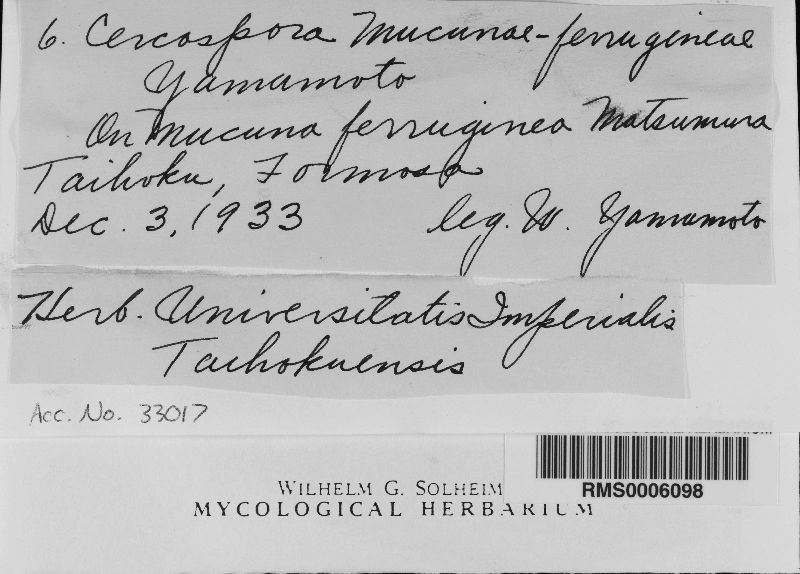 6. Cercospora Mucunae-ferrugineae
Yamamoto
On Mucuna ferruginea Matsumura
Taihoku, Formosa
Dec. 3, 1933 leg. W. Yamamoto
Herb. Universitatis Imperialis
Taihokuensis
Acc. No. 33017
WILHELM G. SOLHEIM
MYCOLOGICAL HERBARIUM
RMS0006098